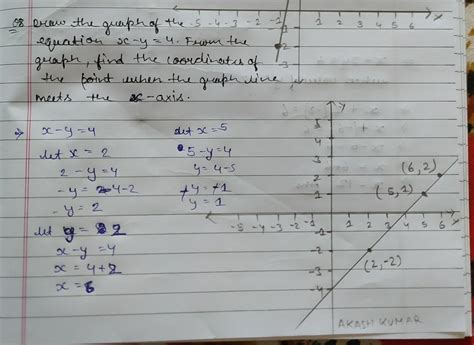 Q8 Draw the graph of the
equation x-y=4. From the
graph, find the coordinates of
the point when the graph line
meets the x-axis.
-5 -4 -3 -2 -1
-2
-3
=> x-y=4
let x = 2
2-y=4
-y= 4-2
-y=2
let y= 2
x-y=4
x=4+2
x=6
let x=5
5-y=4
y=4-5
-y=-1
y=1
y
5
4
3
2
1
-5 -4 -3 -2 -1
1 2 3 4 5 6
x
-1
-2
-3
-4
(6,2)
(5,1)
(2,-2)
AKASH KUMAR